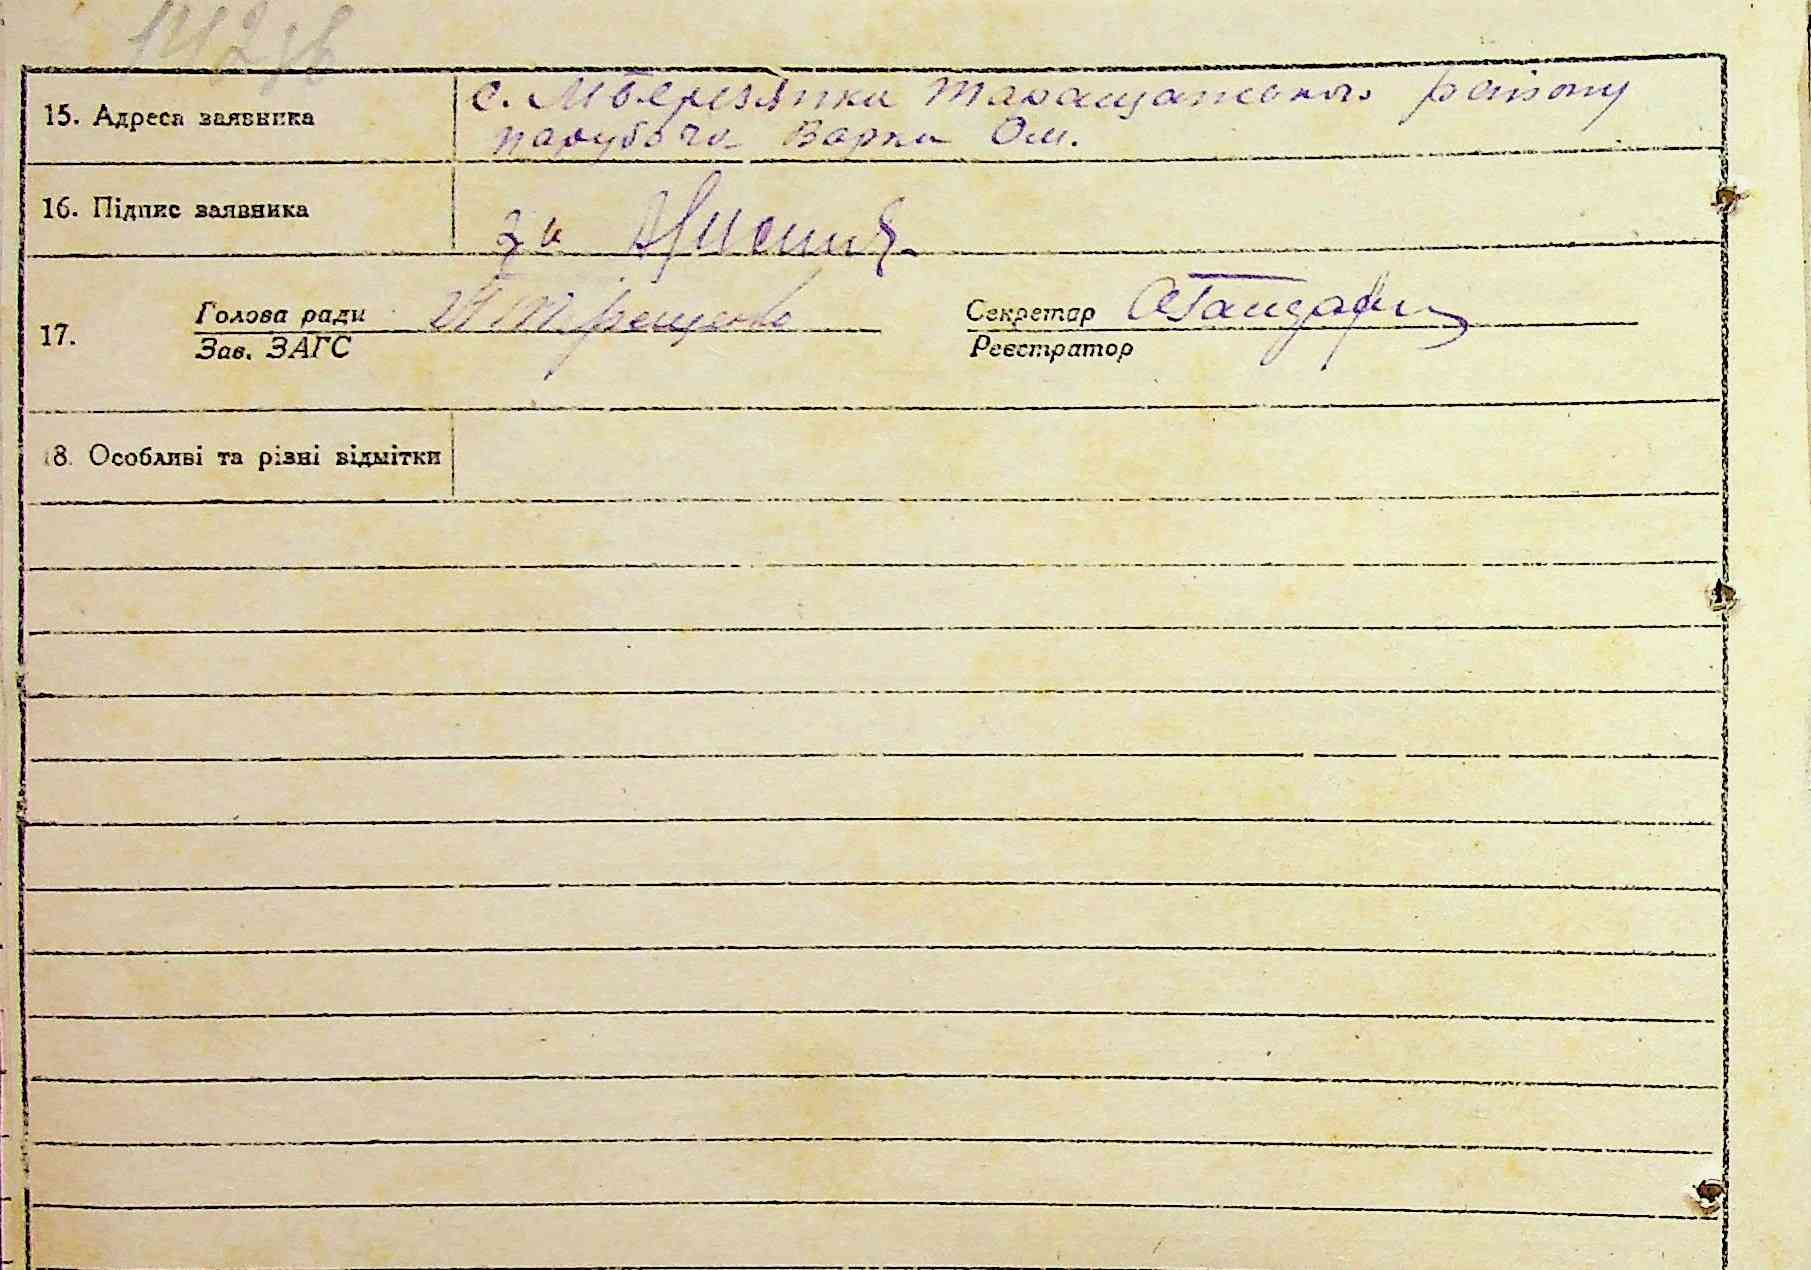 15. Адреса заявника
с. Мберезянка Таращанського району
парубоча Варка Ом.
16. Підпис заявника
за
17.
Голова ради
Зав. ЗАГС
Секретар
Реєстратор
18. Особливі та різні відмітки